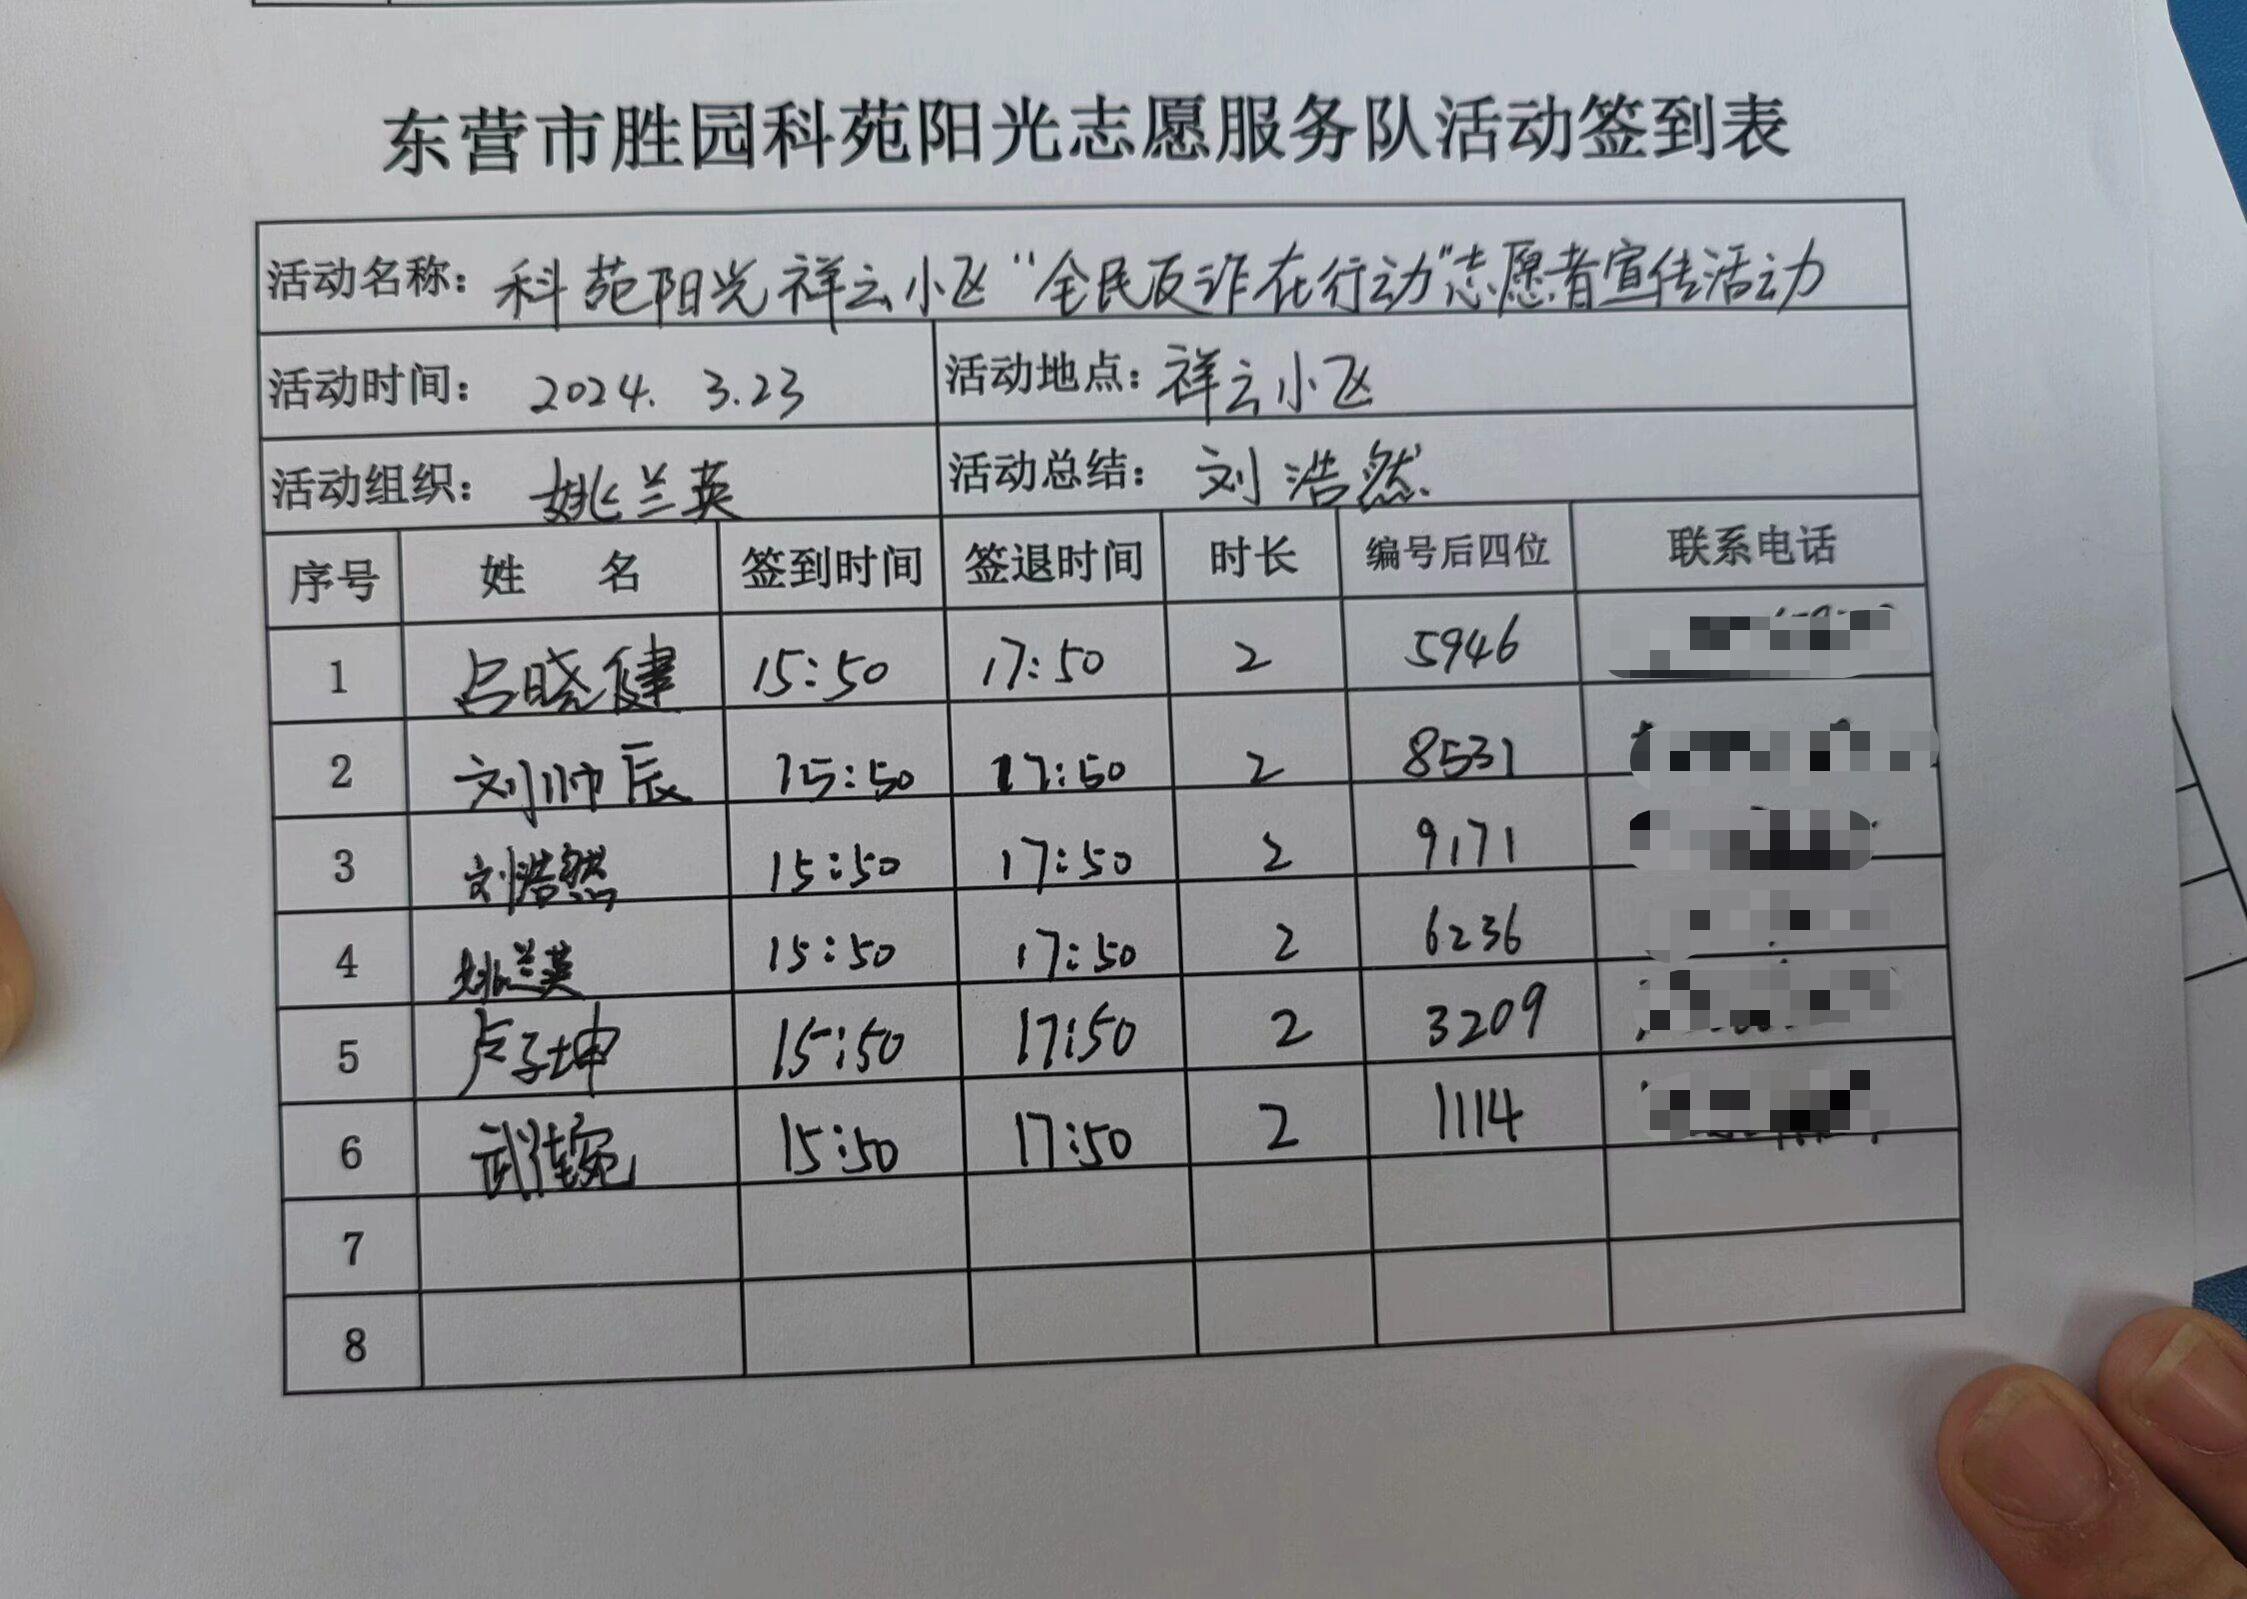 东营市胜园科苑阳光志愿服务队活动签到表
活动名称：科苑阳光祥云小区“全民反诈在行动”志愿者宣传活动
活动时间：2024.3.23 活动地点：祥云小区
活动组织：姚兰英 活动总结：刘浩然
序号 姓名 签到时间 签退时间 时长 编号后四位 联系电话
1 占晓健 15:50 17:50 2 5946
2 刘帅辰 15:50 17:50 2 8531
3 刘浩然 15:50 17:50 2 9171
4 姚兰英 15:50 17:50 2 6236
5 卢子坤 15:50 17:50 2 3209
6 15:50 17:50 2 1114
7
8